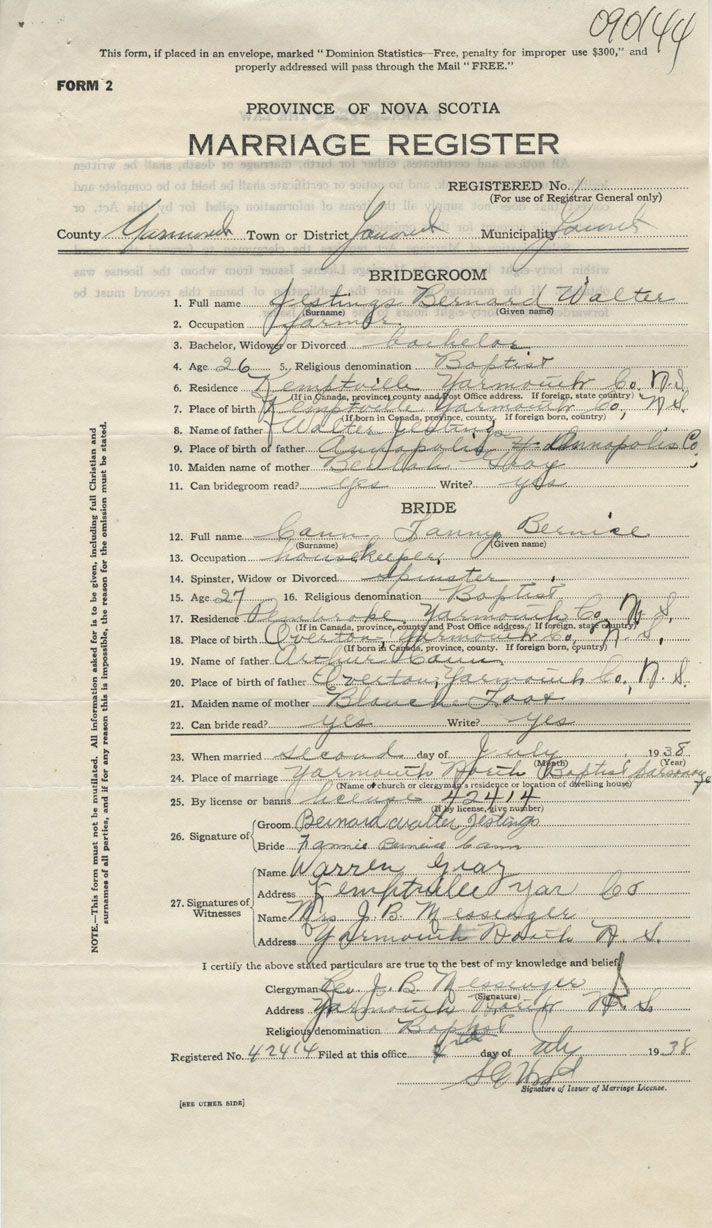 090144
This form, if placed in an envelope, marked "Dominion Statistics—Free, penalty for improper use $300," and
properly addressed will pass through the Mail "FREE."
FORM 2
PROVINCE OF NOVA SCOTIA
MARRIAGE REGISTER
REGISTERED No.
(For use of Registrar General only)
County Yarmouth Town or District Municipality
BRIDEGROOM
1. Full name Jestings Bernard Walter
(Surname) (Given name)
2. Occupation Farmer
3. Bachelor, Widower or Divorced bachelor
4. Age 26 5. Religious denomination Baptist
6. Residence Kemptville Yarmouth Co. N.S.
(If in Canada, province, county and Post Office address. If foreign, state country)
7. Place of birth Kemptville Yarmouth Co., N S.
(If born in Canada, province, county. If foreign born, country)
8. Name of father Walter Jestings
9. Place of birth of father Annapolis, Annapolis Co.,
10. Maiden name of mother Beulah Gray
11. Can bridegroom read? yes Write? yes
BRIDE
12. Full name Cann Fanny Bernice
(Surname) (Given name)
13. Occupation housekeeper
14. Spinster, Widow or Divorced spinster
15. Age 27 16. Religious denomination Baptist
17. Residence Pembroke Yarmouth Co., N. S.
(If in Canada, province, county and Post Office address. If foreign, state country)
18. Place of birth Overton, Yarmouth Co., N. S.
(If born in Canada, province, county. If foreign born, country)
19. Name of father Arthur Cann
20. Place of birth of father Overton, Yarmouth Co., N. S.
21. Maiden name of mother Blanche
22. Can bride read? yes Write? yes
23. When married second day of July 1938
(Month) (Year)
24. Place of marriage Yarmouth North Baptist parsonage
(Name of church or clergyman's residence or location of dwelling house)
25. By license or banns license 42414
(If by license, give number)
26. Signature of
Groom Bernard Walter Jestings
Bride Fannie Bernice Cann
27. Signatures of Witnesses
Name Warren Gray
Address Kemptville Yar Co
Name Mrs J. B. Messenger
Address Yarmouth North N. S.
I certify the above stated particulars are true to the best of my knowledge and belief
Clergyman Rev. J. B. Messenger
(Signature)
Address Yarmouth North N. S.
Religious denomination Baptist
Registered No. 42414 Filed at this office day of July 1938
Signature of Issuer of Marriage License.
[SEE OTHER SIDE]
NOTE.—This form must not be mutilated. All information asked for is to be given, including full Christian and
surnames of all parties, and if for any reason this is impossible, the reason for the omission must be stated.